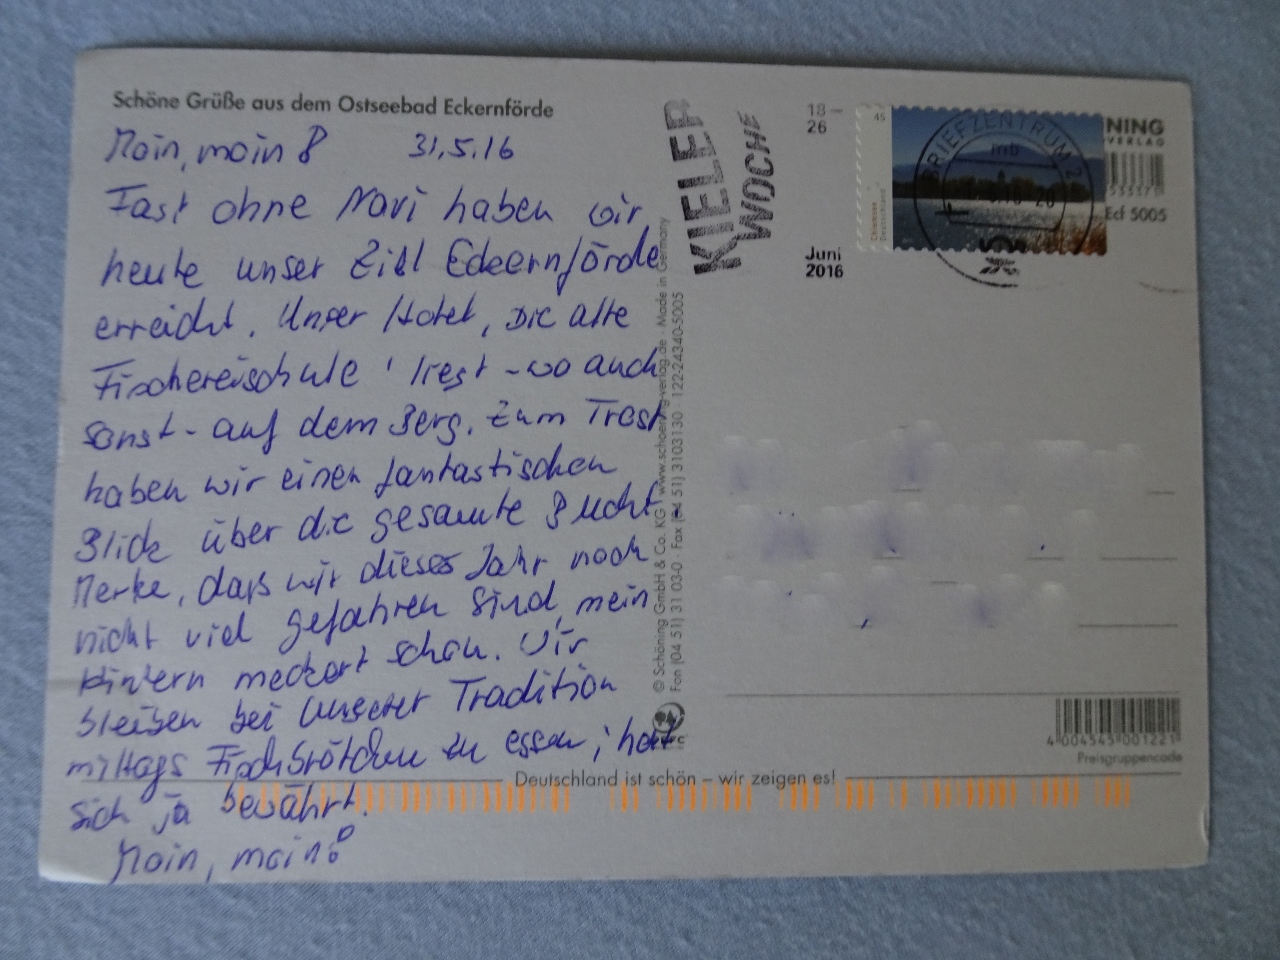 Schöne Grüße aus dem Ostseebad Eckernförde
Moin, moin! 31.5.16
Fast ohne Navi haben wir
heute unser Ziel Eckernförde
erreicht. Unser Hotel, Die alte
Fischereischule' liegt - wo auch
sonst - auf dem Berg. Zum Trost
haben wir einen fantastischen
Blick über die gesamte Bucht
Merke, dass wir dieses Jahr noch
nicht viel gefahren sind, mein
Hintern meckert schon. Wir
bleiben bei unserer Tradition
mittags Fischbrötchen zu essen; hat
sich ja bewährt.
Moin, moin!
© Schöning GmbH & Co. KG · www.schoening-verlag.de · Made in Germany
Fon (04 51) 31 03-0 · Fax (04 51) 3103130 · 122-24340-5005
KIELER
WOCHE
18 –
26
Juni
2016
45
Chiemsee
Deutschland
BRIEFZENTRUM 2
NING
VERLAG
Ecf 5005
4 004545 001221
Preisgruppencode
Deutschland ist schön – wir zeigen es!